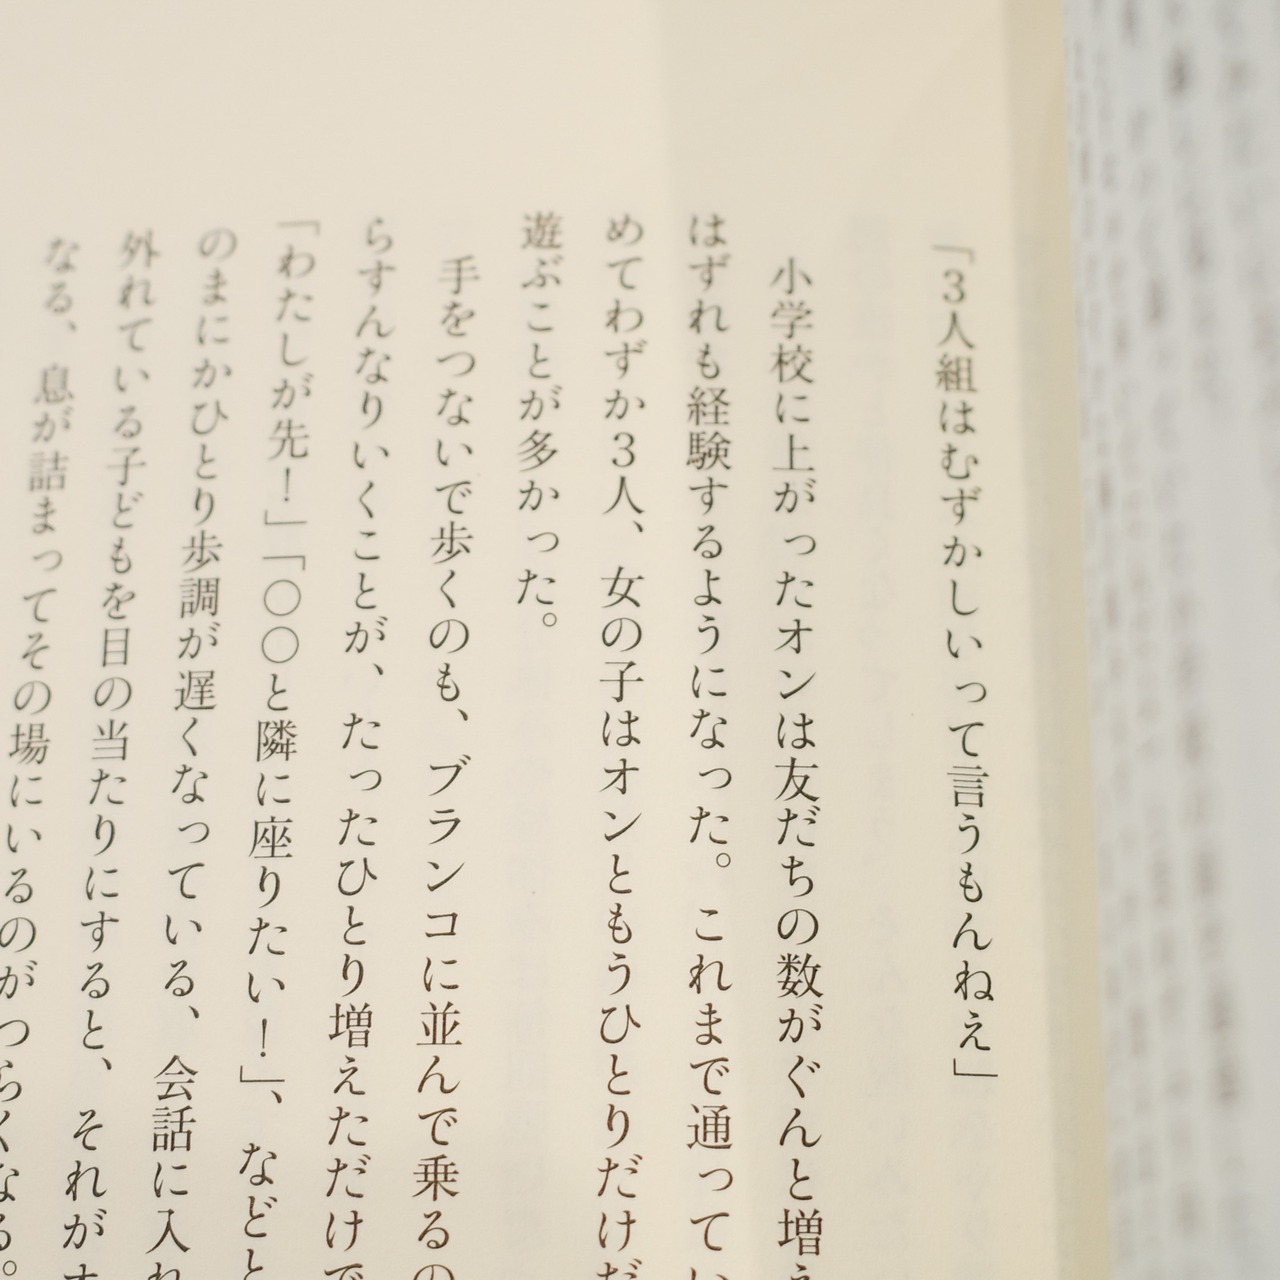 「3人組はむずかしいって言うもんねえ」
小学校に上がったオンは友だちの数がぐんと増え
はずれも経験するようになった。これまで通ってい
めてわずか3人、女の子はオンともうひとりだけだ
遊ぶことが多かった。
手をつないで歩くのも、ブランコに並んで乗るの
らすんなりいくことが、たったひとり増えただけで
「わたしが先！」「〇〇と隣に座りたい！」、などと
のまにかひとり歩調が遅くなっている、会話に入れ
外れている子どもを目の当たりにすると、それがオ
なる、息が詰まってその場にいるのがつらくなる。